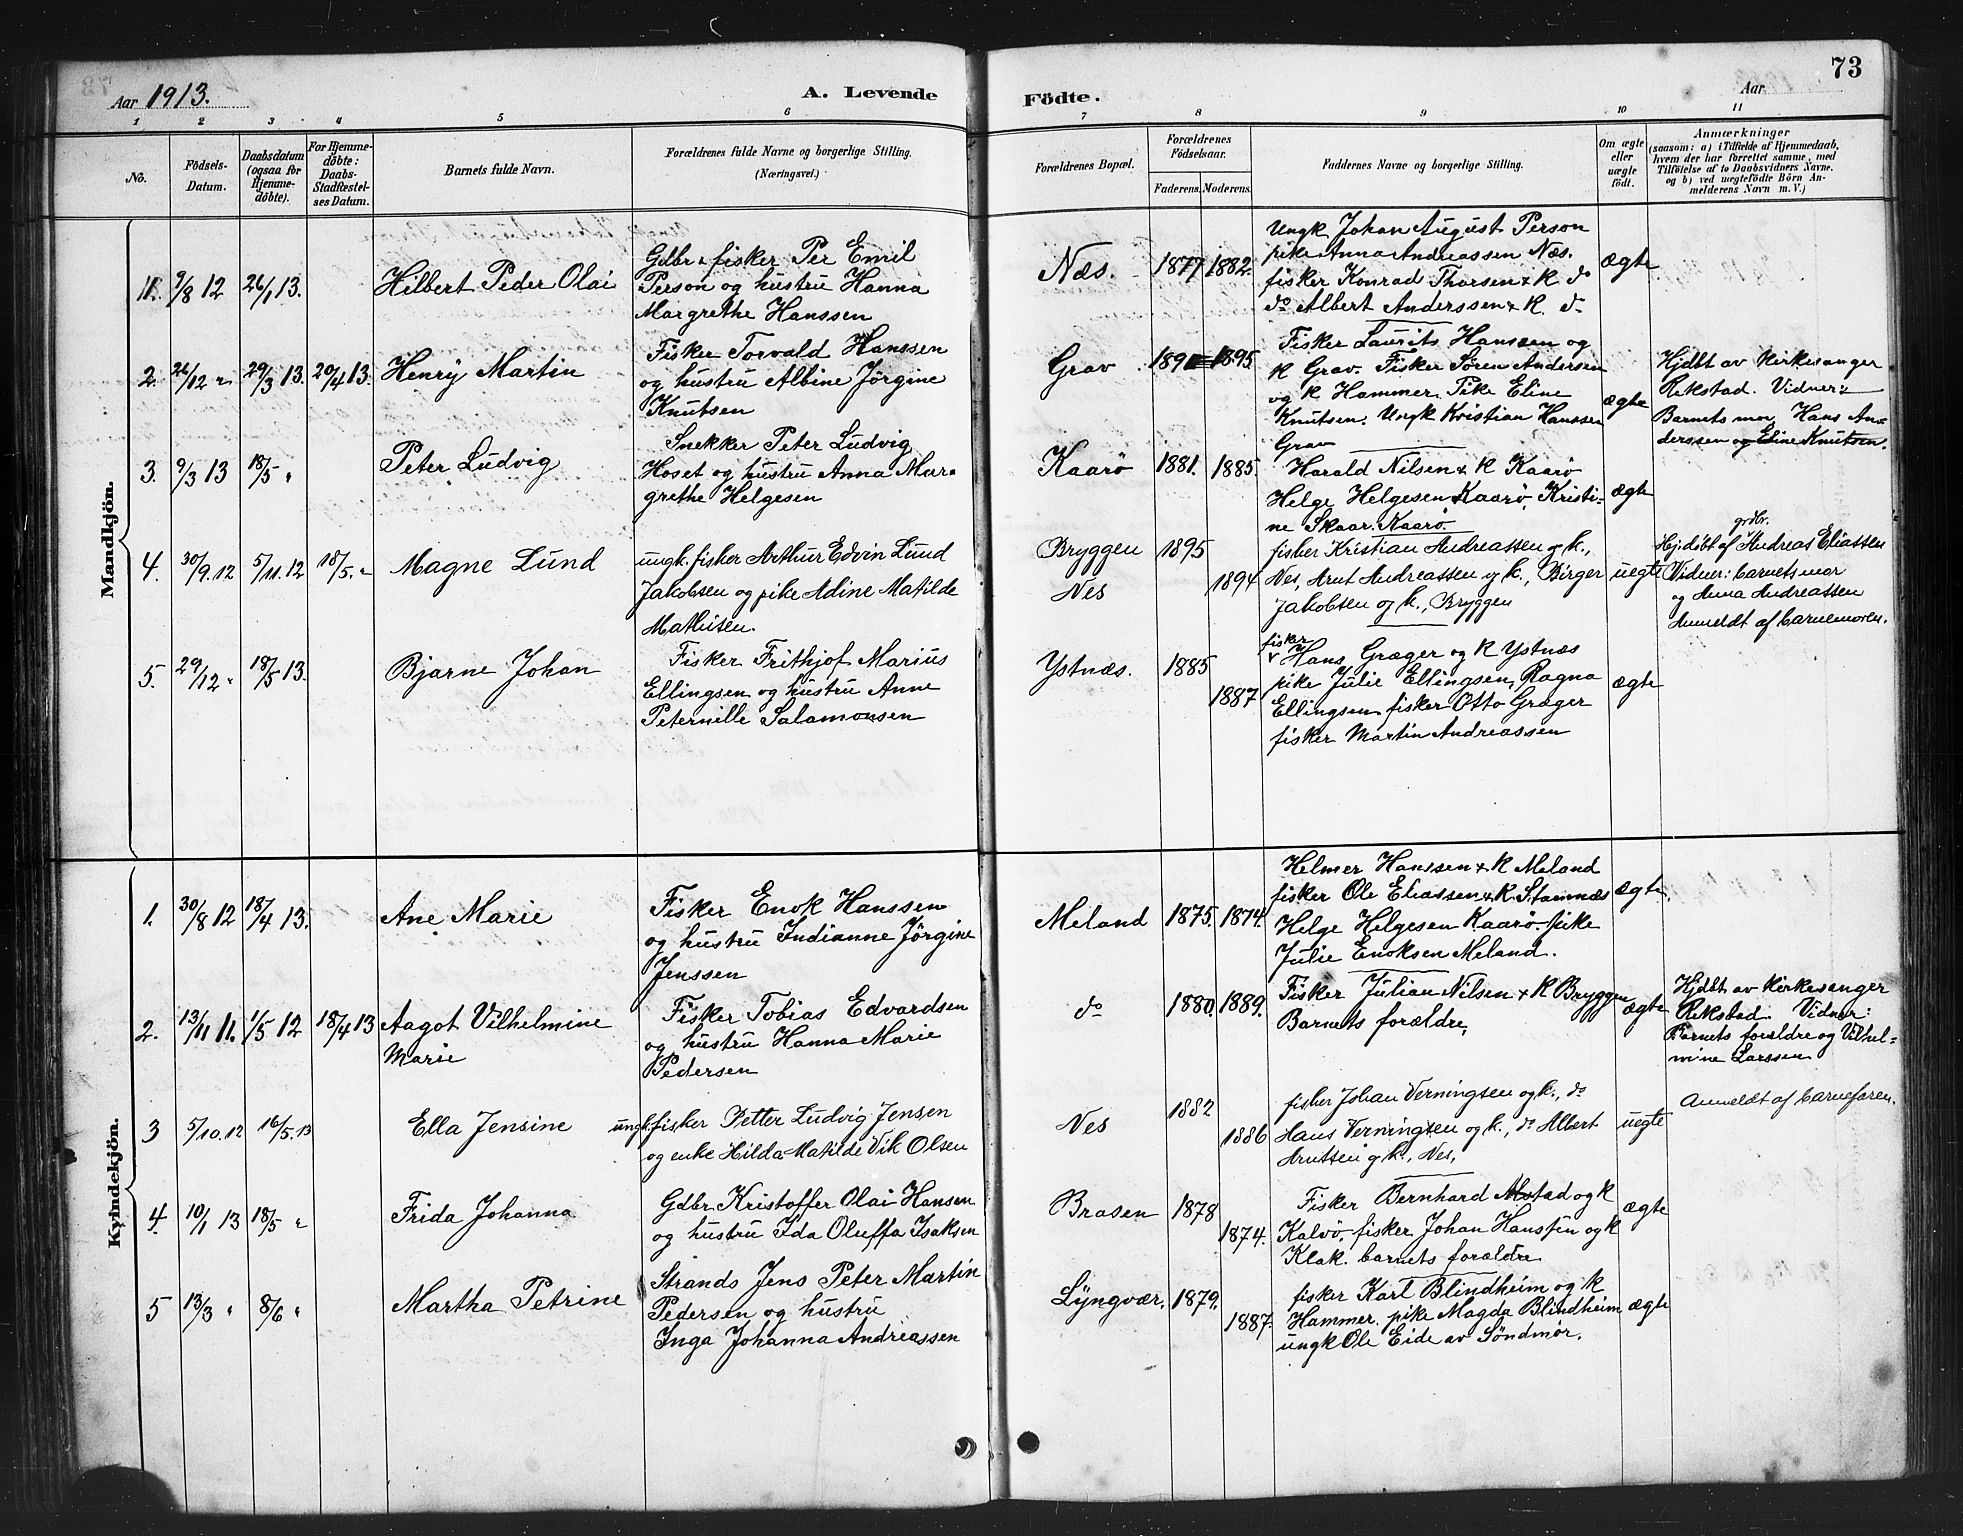 73
Aar 1913.
A. Levende
Födte.
Aar
1
2
3
4
5
6
7
8
9
10
11
No.
Födsels-
Datum.
Daabsdatum
(ogsaa for
Hjemme-
döbte).
For Hjemme-
döbte:
Daabs-
Stadfæstel-
ses Datum.
Barnets fulde Navn.
Forældrenes fulde Navne og borgerlige Stilling.
(Næringsvei.)
Forældrenes Bopæl.
Forældrenes
Födselsaar.
Faderens.
Moderens.
Faddernes Navne og borgerlige Stilling.
Om ægte
eller
uægte
födt.
Anmærkninger
(saasom: a) i Tilfælde af Hjemmedaab,
hvem der har forrettet samme, med
Tilföielse af to Daabsvidners Navne,
og b) ved uægtefödte Börn An-
melderens Navn m. V.)
Mandkjön.
1. 9/8 12 26/1 13.
Hilbert Peder Olai
Gdbr. fisker Per Emil
Person og hustru Hanna
Margrethe Hanssen
Næs. 1877 1882.
Ungk Johan August Person
pike Anna Andreassen Næs.
fisker Konrad Thorsen & k do
do Albert Anderssen & k. do
ægte
2. 26/12 " 29/3 13. 20/4 13.
Henry Martin
Fisker Torvald Hanssen
og hustru Albine Jörgine
Knutsen
Grav 1891 1895
Fisker Laurits Hanssen og
k Grav. Fisker Sören Andersen
og k Hammer. Pike Eline
Knutsen. Ungk Kristian Hanssen
Grav
ægte
Hjdbt av kirkesanger
Rekstad. Vidner:
Barnets mor, Hans An-
derssen og Eline Knutsen.
3. 9/3 13 18/5 "
Peter Ludvig
Snekker Peter Ludvig
Hoset og hustru Anna Mar-
grethe Helgesen
Kaarö 1881. 1885.
Harald Nilsen & k Kaarö
Helge Helgesen Kaarö, Kristi-
ne Skaar. Kaarö.
ægte
4. 30/9.12 5/11.12 18/5. "
Magne Lund
ungk. fisker Arthur Edvin Lund
Jakobsen og pike Adine Matilde
Mathisen.
Bryggen 1895
Nes 1894
fisker Kristian Andreassen og k.,
Nes, Arnt Andreassen og k., Birger
Jakobsen og k., Bryggen
uegte
Hj.döbt af grdbr. Andreas Eliassen
Vidner: barnets mor
og Anna Andreassen
Anmeldt af barnemoren.
5. 29/12 " 18/5 13.
Bjarne Johan
Fisker Frithjof Marius
Ellingsen og hustru Anne
Peternille Salamonsen
Ystnæs. 1885
1887
fisker
Hans Græger og k Ystnæs
pike Julie Ellingsen, Ragna
Ellingsen fisker Otto Græger
fisker Martin Andreassen
ægte
Kvindekjön.
1. 30/8 12 18/4 13.
Ane Marie
Fisker Enok Hanssen
og hustru Indianne Jörgine
Jenssen
Meland 1875. 1874.
Helmer Hanssen & k Meland
fisker Ole Eliassen & k. Stamnæs
Helge Helgesen Kaarö. pike
Julie Enoksen Meland.
ægte.
2. 13/11 11. 1/5 12 18/4 13
Aagot Vilhelmine
Marie
Fisker Tobias Edvardsen
og hustru Hanna Marie
Pedersen
do 1880. 1889.
Fisker Julian Nilsen & k Bryggen
Barnets forældre,
ægte
Hjdbt av kirkesanger
Rekstad. Vidner:
Barnets forældre og Vilhel-
mine Larssen
3 5/10.12 16/5.13
Ella Jensine
ungk. fisker Petter Ludvig Jensen
og enke Hilda Matilde Vik Olsen
Nes 1882
1886
fisker Johan Verningsen og k., do
Hans Verningsen og k., do Albert
Arntsen og k., Nes,
uegte
Anmeldt af barnefaren.
4. 10/1 13 18/5 "
Frida Johanna
Gdbr Kristoffer Olai Hansen
og hustru Ida Oluffa Isaksen
Brasen 1878
1874.
Fisker Bernhard Mostad og k
Kalvö, fisker Johan Hanssen og k
Klak. barnets forældre
ægte
5 13/3 " 8/6 "
Martha Petrine
Strands. Jens Peter Martin
Pedersen og hustru
Inga Johanna Andreassen
Lyngvær, 1879.
1887.
fisker Karl Blindheim og k
Hammer. pike Magda Blindheim
ungk Ole Eide av Söndmör.
ægte